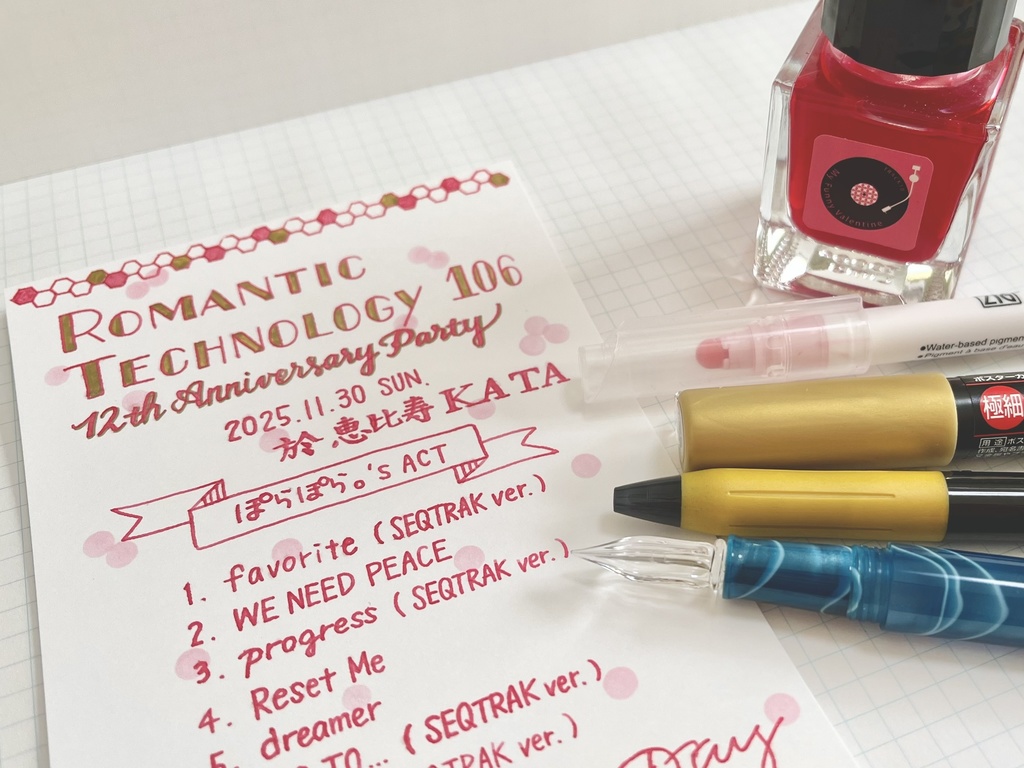 ROMANTIC
TECHNOLOGY 106
12th Anniversary Party
2025.11.30 SUN.
於 恵比寿 KATA
ぽらぽら。'S ACT
1. favorite (SEQTRAK ver.)
2. WE NEED PEACE
3. progress (SEQTRAK ver.)
4. Reset Me
5. dreamer
TO... (SEQTRAK ver.)
SEQTRAK ver.)
My Funny Valentine
ZIG
●Water-based pigmen
●Pigment à base d'eau
ポスターカ
極細
用途